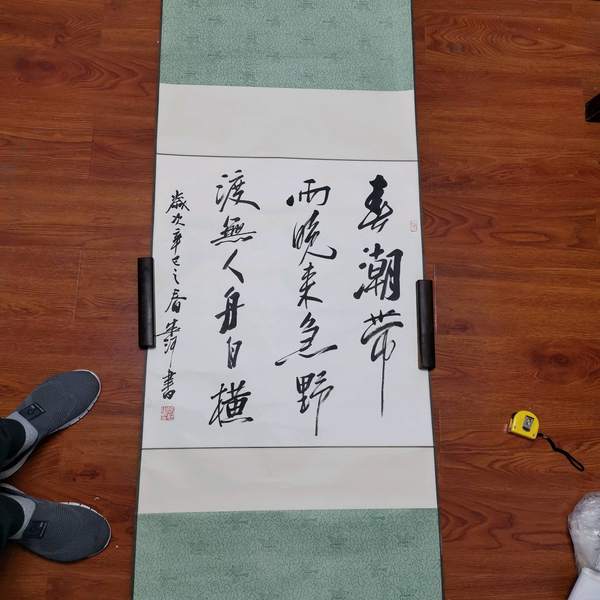 春潮帶
雨晚来急野
渡無人舟自横
歲次辛巳之春
書